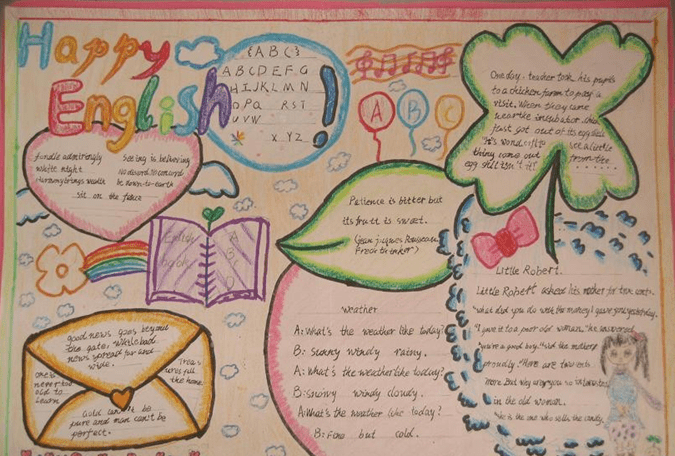 Happy
English!
{ABC}
ABCDEFG
HIJKLMN
OPQ RST
UVW
XYZ
A B C
One day. teacher took his pupils
to a chicken farm to pay a
visit. When they
the incubator
just got out of its eggshell
see a little
thing come out
from the
egg shell
Seeing is believing
white night
Harmony brings wealth
be down-to-earth
sit on the fence
Patience is bitter but
its fruit is sweet.
English
book
A
B
C
D
good news goes beyond
the gate, while bad
news spread far and
wide.
one is
never too
old to
learn
Treas
ures fill
the home
Gold can't be
pure and man can't be
perfect.
weather
A: What's the weather like today?
B: Sunny windy rainy.
A: What's the weather like today?
B: Snowy windy cloudy.
A: What's the weather like today?
B: Fine but cold.
Little Robert.
Little Robert asked his mother for two cents.
"What did you do with the money I gave you yesterday.
"I gave it to a poor old woman," he answered
"you're a good boy," said the mother
proudly. "Here are two cents
more. But why are you so interested
in the old woman.
"She is the one who sells the candy.